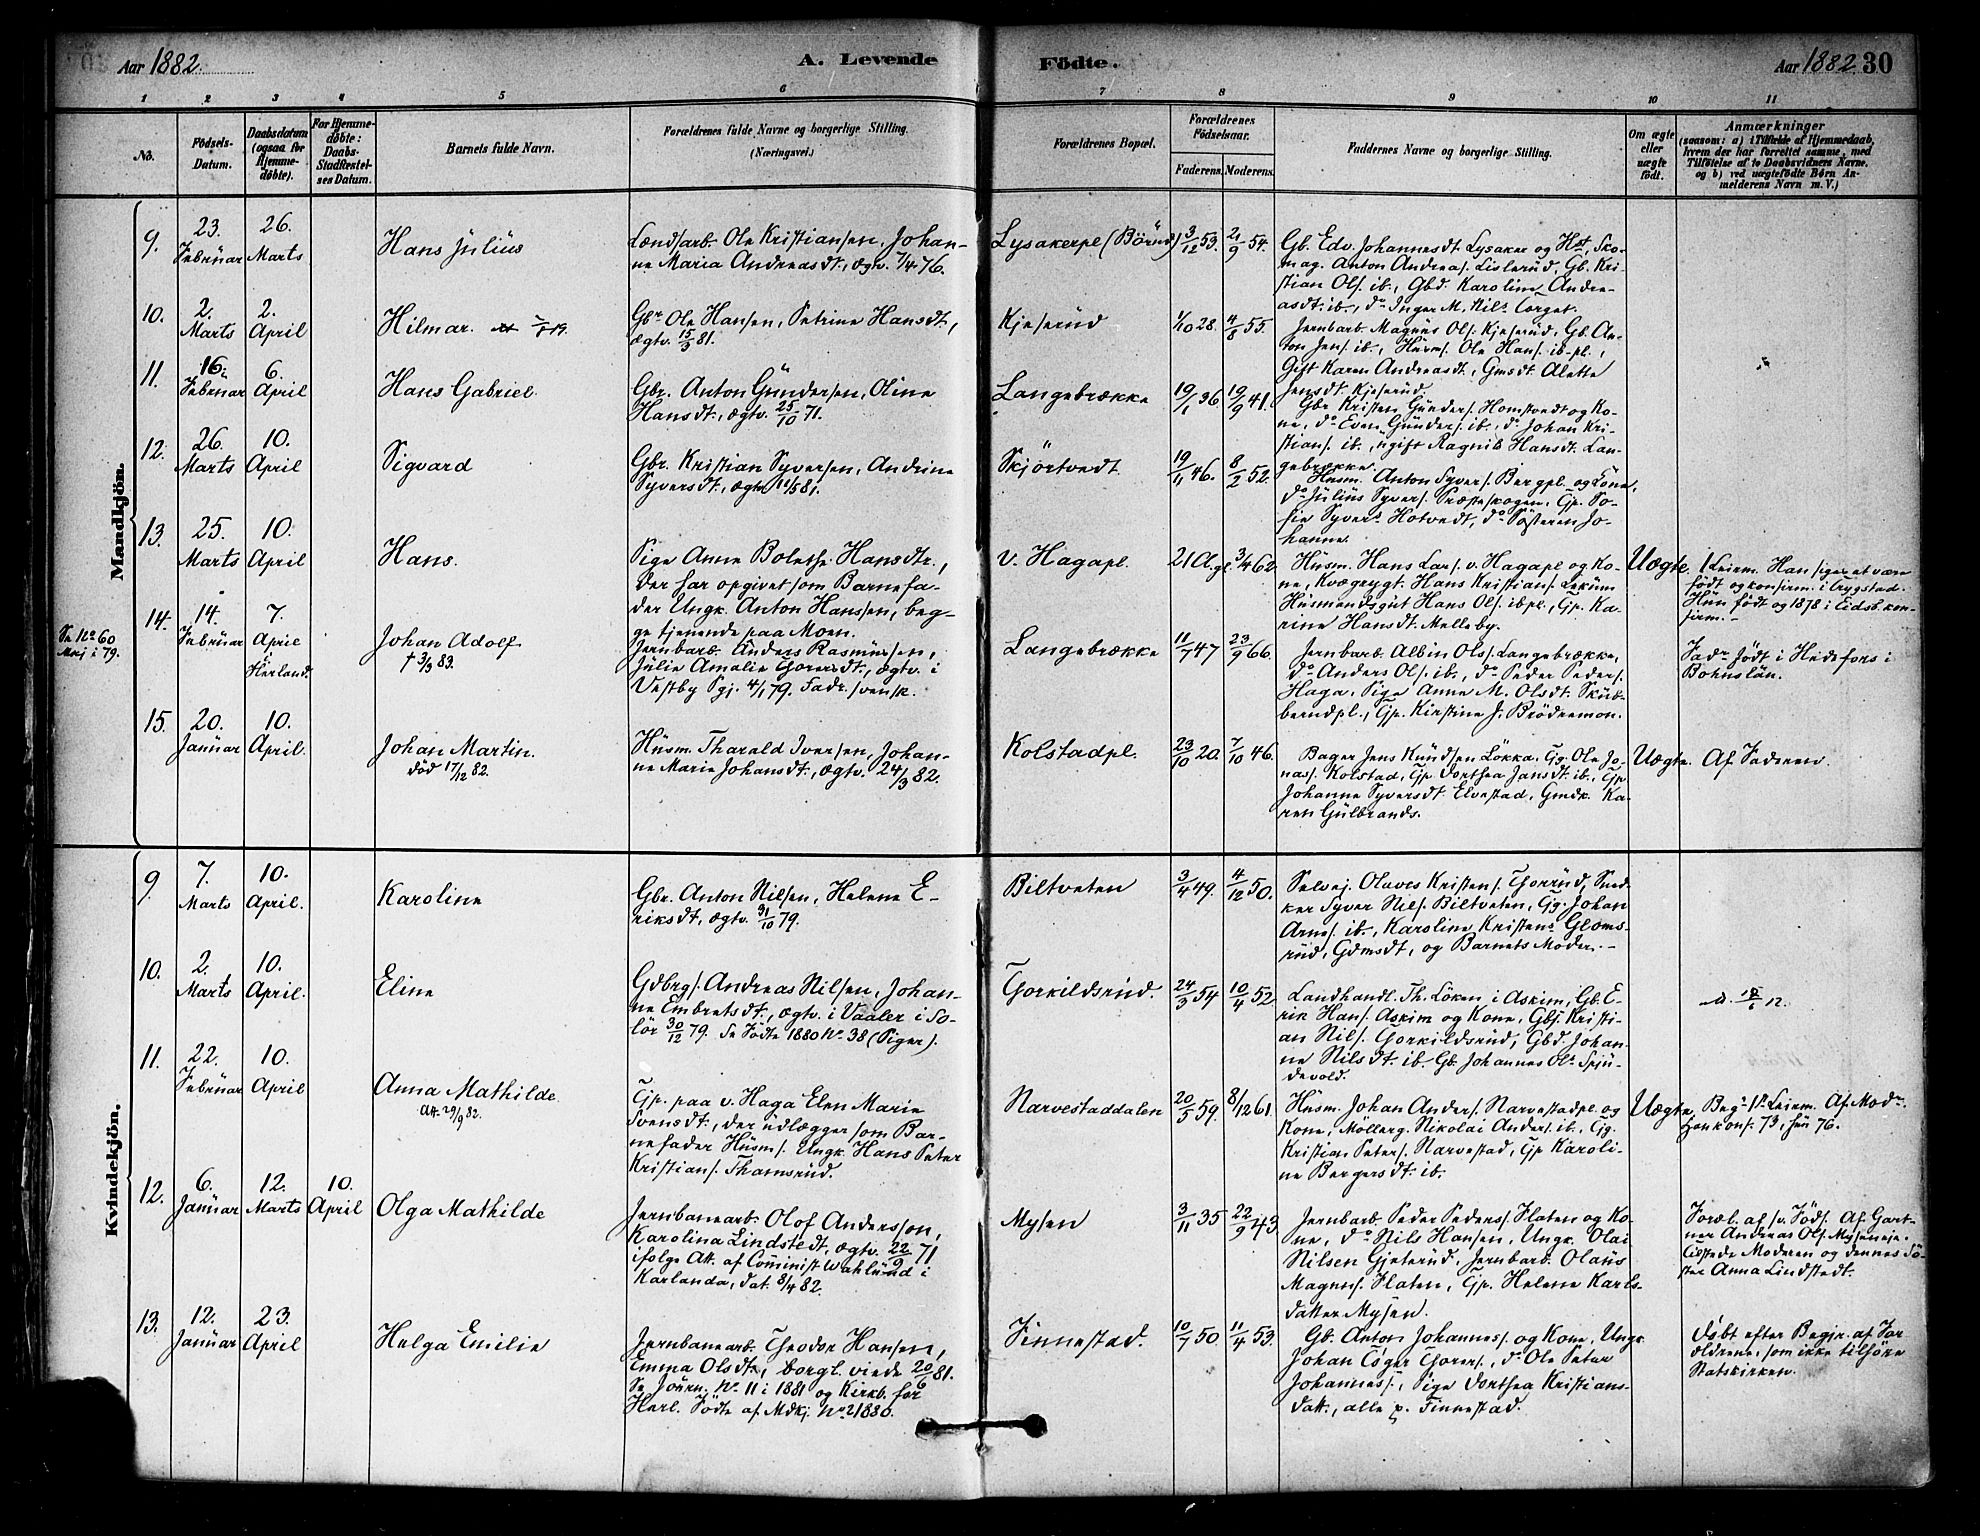 Aar 1882.
A. Levende
Födte.
Aar 1882 30
1 2 3 4 5 6 7 8 9 10 11
No.
Födsels-
Datum.
Daabsdatum
(ogsaa for
Hjemme-
döbte).
For Hjemme-
döbte:
Daabs-
Stadfæstel-
ses Datum.
Barnets fulde Navn.
Forældrenes fulde Navne og borgerlige Stilling.
(Næringsvei.)
Forældrenes Bopæl.
Forældrenes
Födselsaar.
Faderens. Moderens.
Faddernes Navne og borgerlige Stilling.
Om ægte
eller
uægte
födt.
Anmærkninger
(saasom: a) i Tilfælde af Hjemmedaab,
hvem der har forrettet samme, med
Tilföielse af to Daabsvidners Navne,
og b) ved uægtefödte Börn An-
melderens Navn m. V.)
Mandkjön.
9.
23.
Februar
26.
Marts
Hans Julius
Landsarb. Ole Kristiansen, Johan-
ne Maria Andreasdt., ægtv. 7/4 76.
Lysakerpl (Börud)
3/12 53.
21/9 54.
Gb. Edv. Johannesdt. Lysaker og Hst, Sko-
mag. Anton Andreas. Lislerud, Gb. Kri-
stian Ols. ib., Gbd. Karoline Andre-
asdt. ib., do Inger M. Nils. Torget.
10.
2.
Marts
2.
April
Hilmar.
Gbr Ole Hansen, Petrine Hansdt.,
ægtv. 15/3 81.
Kjeserud
1/10 28.
4/8 55.
Jernbarb. Magnus Ols. Kjeserud, Gb. An-
ton Jens. ib., Husm. Ole Hans. ib. pl.,
Gift Karen Andreasdt., Gmsdt. Alette
Jensdt. Kjeserud.
11.
16.
Februar
6.
April
Hans Gabriel.
Gbr. Anton Gundersen, Oline
Hansdt., ægtv. 25/10 71.
Langebrække
19/1 36
19/9 41.
Gbr Kristen Gunders. Homstvedt og Ko-
ne, do Even Gunders. ib., do Johan Kri-
stians. ib., ugift Ragnild Hansdt. Lan-
gebrække.
12.
26.
Marts
10.
April
Sigvard
Gbr. Kristian Syversen, Andrine
Syversdt., ægtv. 11/5 81.
Skjörtvedt
19/11 46.
8/2 52.
Husm. Anton Syvers. Bergpl. og Kone,
do Julius Syvers. Præsteskogen, Gp. So-
fie Syvers. Hotvedt, do Söstren Jo-
hanne.
13.
25.
Marts
10.
April
Hans.
Pige Anne Bolette Hansdtr.,
der har opgivet som Barnefa-
der Ungk. Anton Hanssen, beg-
ge tjenende paa Moen.
v. Hagapl.
21 A.gl.
3/4 62
Husm. Hans Lars. v. Hagapl og Ko-
ne, Kvægrygt. Hans Kristians. Lekum
Husmandsgut Hans Ols. ibpl., Gp. Ka-
rine Hansdt. Melleby.
Uægte.
1 Leierm. Han siges at være
födt og konfirm. i Trygstad.
Hun födt og 1878 i Eidsb. kon-
firm. -
Se No 60
Mkj i 79.
14.
14.
Februar
7.
April
i
Herland.
Johan Adolf
† 3/3 83.
Jernbarb. Anders Rasmussen,
Julie Amalie Toresdt., ægtv. i
Vestby Pgj. 4/1 79. Fadr. svensk.
Langebrække
11/7 47
23/9 66.
Jernbarb. Albin Ols. Langebrække,
do Anders Ols. ib., do Peder Peders.
Haga. Pige Anne M. Olsdt. Skub-
berudpl., Gp. Kirstine J. Brödremon.
Fadr födt i Hedefors i
Bohuslän.
15.
20.
Januar
10.
April.
Johan Martin.
död 17/12 82.
Husm. Tharald Iversen, Johan-
ne Marie Johansdt., ægtv. 24/3 82.
Kolstadpl.
23/10 20.
7/10 46.
Bager Jens Knudsen Lökka, Gg. Ole Jo-
nas. Kolstad, Gp Dorthea Jansdt. ib., Gp
Johanne Syversdt. Elvestad, Gmdk. Ka-
ren Gulbrands.
Uægte.
Af Faderen.
Kvindekjön.
9.
7.
Marts
10.
April.
Karoline
Gbr. Anton Nilsen, Helene E-
riksdt., ægtv. 31/10 79.
Biltveten
3/4 49.
4/12 50.
Selvej. Olaves Kristens. Torrud, Sned-
ker Syver Nils. Biltveten, Gg. Johan
Arnes. ib., Karoline Kristens. Gloms-
rud, Gdmsdt., og Barnets Moder. -
10.
2.
Marts
10.
April.
Eline
Gdbrgs. Andreas Nilsen, Johan-
ne Embretsdt., ægtv. i Vaaler i So-
lör 30/12 79. Se Födte 1880 No. 38 (Piger).
Torkildsrud.
24/3 54
10/4 52.
Landhandl. Th. Löken i Askim, Gb. E-
rik Hans. Askim og Kone, Gbs. Kristi-
an Nils. Torkildsrud, Gbd. Johan-
ne Nilsdt. ib. Gb. Johannes Ols. Spyn-
devold.
11.
22.
Februar
10.
April
Anna Mathilde
Att. 29/9 82.
Gp. paa v. Haga Elen Marie
Svensdt., der udlægger som Bar-
nefader Husms. Ungk. Hans Peter
Kristians. Thamsrud.
Narvestaddalen
20/5 59.
8/12 61.
Husm. Johan Anders. Narvestadpl. og
Kone, Möllerg. Nikolai Anders. ib., Gg.
Kristian Peters. Narvestad, Gp Karoli-
ne Bergersdt. ib.
Uægte
Beg. 1ste Leierm. Af Modr.
Han konf. 73, hun 76.
12.
6.
Januar
12.
Marts
10.
April
Olga Mathilde
Jernbanearb. Olof Andersson,
Karolina Lindstedt, ægtv. 22/9 71
ifölge Att. af Cominist. Wahlund i
Karlanda, dat. 8/4 82.
Mysen
3/11 35
22/9 43
Jernbarb. Peder Peders. Flaten og Ko-
ne, do Nils Hansen, Ungk. Olai
Nilsen Gjeterud, Jernbarb. Olaus
Magnus. Flaten, Gp. Helene Karls-
datter Mysen.
Foræl. af sv. Föds. Af Gart-
ner Andreas Ols. Myseneie.
Tilstede Moderen og dennes Sö-
ster Anna Lindstedt.
13.
12.
Januar
23.
April
Helga Emilie
Jernbanearb. Theodor Hansen,
Emma Olsdtr, borgl. viede 20/6 81.
Se Journ. No. 11 i 1881 og Kirkb. for
Herl. Födte af Mdkj. No. 2 1880.
Finnestad.
10/7 50.
11/4 53.
Gb. Anton Johannes. og Kone, Ungk
Johan Töger Torers., do Ole Peter
Johannes., Pige Dorthea Kristians-
datt., alle p. Finnestad.
Döbt efter Begjr. af For
ældrene, som ikke tilhöre
Statskirken.